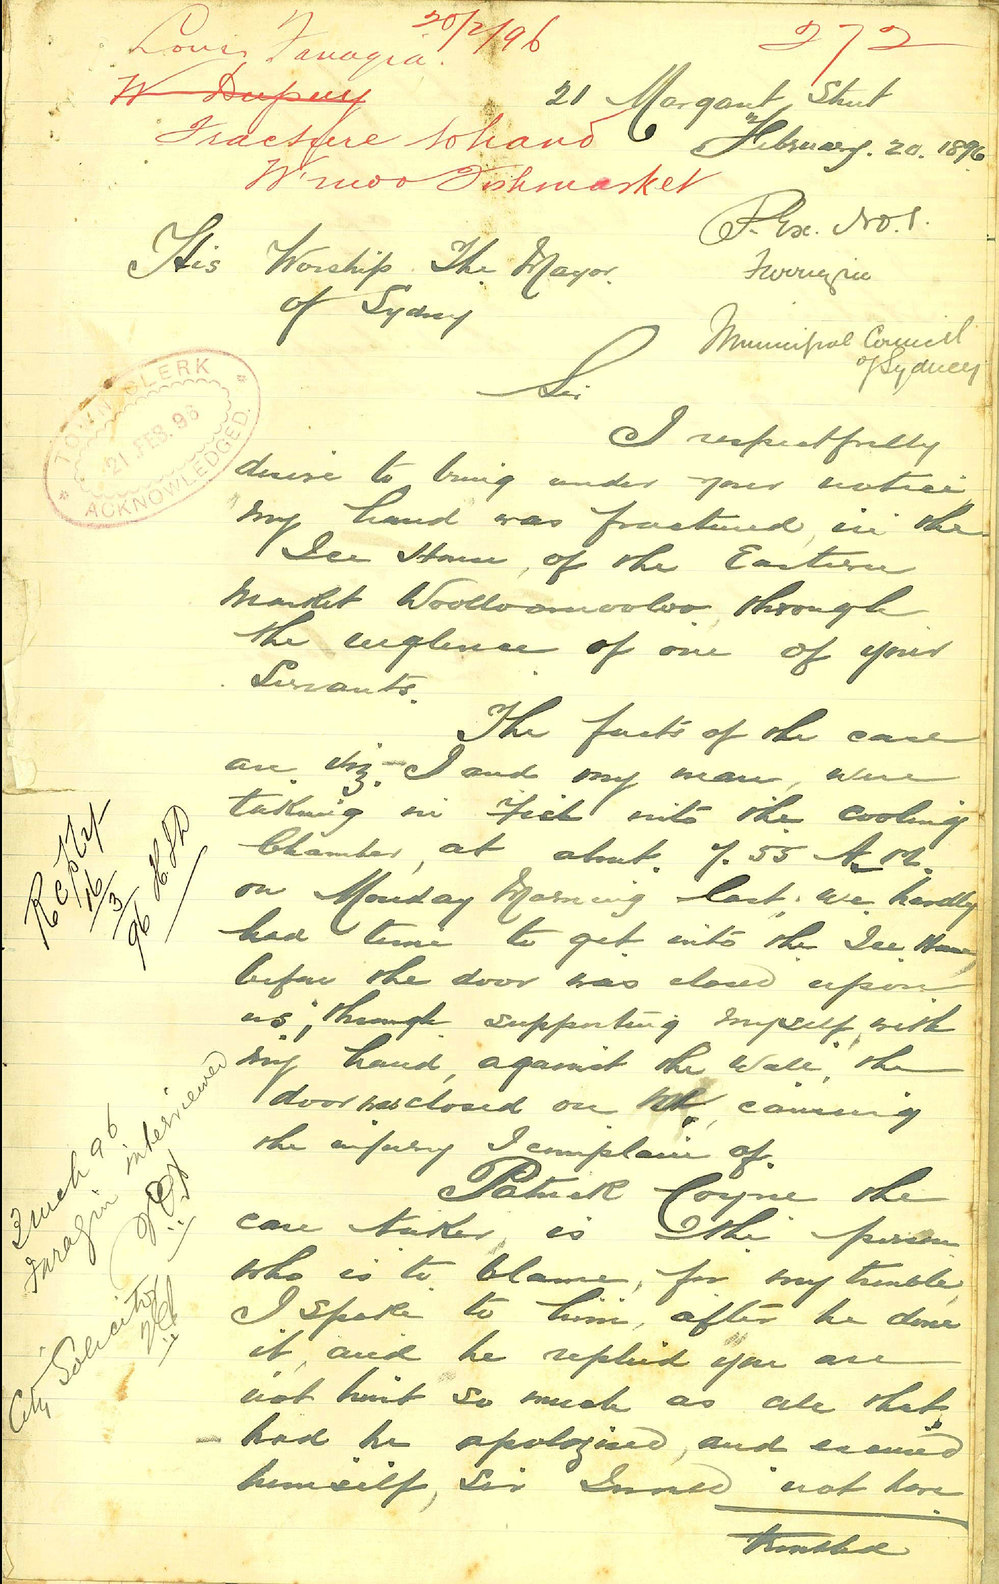 20/2/96
272
Louis Faragia.
W Dupuy
Fracture to hand
W'moo Fishmarket
21 Margaret Street
February. 20. 1896
P. Ex. No. 1.
Municipal Council
of Sydney
His Worship The Mayor.
of Sydney
TOWN CLERK
21 FEB. 96
ACKNOWLEDGED.
Sir
I respectfully
desire to bring under your notice,
my hand was fractured, in the
Ice House, of the Eastern
Market Woolloomooloo, through
the neglence of one of your
Servants.
The facts of the case
are. viz:- I and my man, were
taking in Fish into the cooling
Chamber, at about. 7.55 A.M.
on Monday Morning last, we hardly
had time to get into the Ice House,
before the door was closed upon
us, through supporting myself, with
my hand, against the Wall, the
door was closed on it, causing
the injury I complain of.
Patrick Coyne the
care taker, is the person
who is to blame, for my trouble,
I spoke to him, after he done
it, and he replied you are
not hurt so much as all that,
had he apologised, and excused
himself, Sir I would not have
troubled
Reply
16/3
96
3 Mch 96
interviewed
City Solicitor